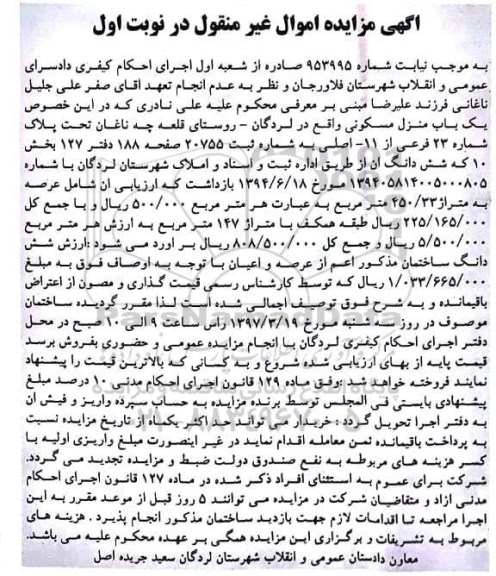 اگهی مزایده اموال غیر منقول در نوبت اول
به موجب نیابت شماره ۹۵۳۹۹۵ صادره از شعبه اول اجرای احکام کیفری دادسرای
عمومی و انقلاب شهرستان فلاورجان و نظر به عدم انجام تعهد اقای صفر علی جلیل
ناغانی فرزند علیرضا مبنی بر معرفی محکوم علیه علی نادری که در این خصوص
یک باب منزل مسکونی واقع در لردگان - روستای قلعه چه ناغان تحت پلاک
شماره ۲۳ فرعی از ۱۱- اصلی به شماره ثبت ۲۰۷۵۵ صفحه ۱۸۸ دفتر ۱۲۷ بخش
۱۰ که شش دانگ ان از طریق اداره ثبت و اسناد و املاک شهرستان لردگان با شماره
۱۳۹۴۰۵۸۱۴۰۰۵۰۰۰۸۰۵ مورخ ۱۳۹۴/۶/۱۸ بازداشت که ارزیابی ان شامل عرصه
به متراژ ۴۵۰/۳۳ متر مربع به عبارت هر متر مربع ۵۰۰/۰۰۰ ریال و با جمع کل
۲۲۵/۱۶۵/۰۰۰ ریال طبقه همکف با متراژ ۱۴۷ متر مربع به ارزش هر متر مربع
۵/۵۰۰/۰۰۰ ریال و جمع کل ۸۰۸/۵۰۰/۰۰۰ ریال بر اورد می شود :ارزش شش
دانگ ساختمان مذکور اعم از عرصه و اعیان با توجه به اوصاف فوق به مبلغ
۱/۰۳۳/۶۶۵/۰۰۰ ریال که توسط کارشناس رسمی قیمت گذاری و مصون از اعتراض
باقیمانده و به شرح فوق توصیف اجمالی شده است لذا مقرر گردیده ساختمان
موصوف در روز سه شنبه مورخ ۱۳۹۷/۳/۱۹ راس ساعت ۹ الی ۱۰ صبح در محل
دفتر اجرای احکام کیفری لردگان با انجام مزایده عمومی و حضوری بفروش برسد
قیمت پایه از بهای ارزیابی شده شروع و به کسانی که بالاترین قیمت را پیشنهاد
نمایند فروخته خواهد شد :وفق ماده ۱۲۹ قانون اجرای احکام مدنی ۱۰ درصد مبلغ
پیشنهادی بایستی فی المجلس توسط برنده مزایده به حساب سپرده واریز و فیش ان
به دفتر اجرا تحویل گردد : خریدار می تواند حد اکثر یکماه از تاریخ مزایده نسبت
به پرداخت باقیمانده ثمن معامله اقدام نماید در غیر اینصورت مبلغ واریزی اولیه با
کسر هزینه های مربوطه به نفع صندوق دولت ضبط و مزایده تجدید می گردد.
شرکت برای عموم به استثنای افراد ذکر شده در ماده ۱۲۷ قانون اجرای احکام
مدنی ازاد و متقاضیان شرکت در مزایده می توانند ۵ روز قبل از موعد مقرر به این
اجرا مراجعه تا اقدامات لازم جهت بازدید ساختمان مذکور انجام پذیرد . هزینه های
مربوط به تشریفات و برگزاری این مزایده همگی بر عهده محکوم علیه می باشد.
معاون دادستان عمومی و انقلاب شهرستان لردگان سعید جریده اصل